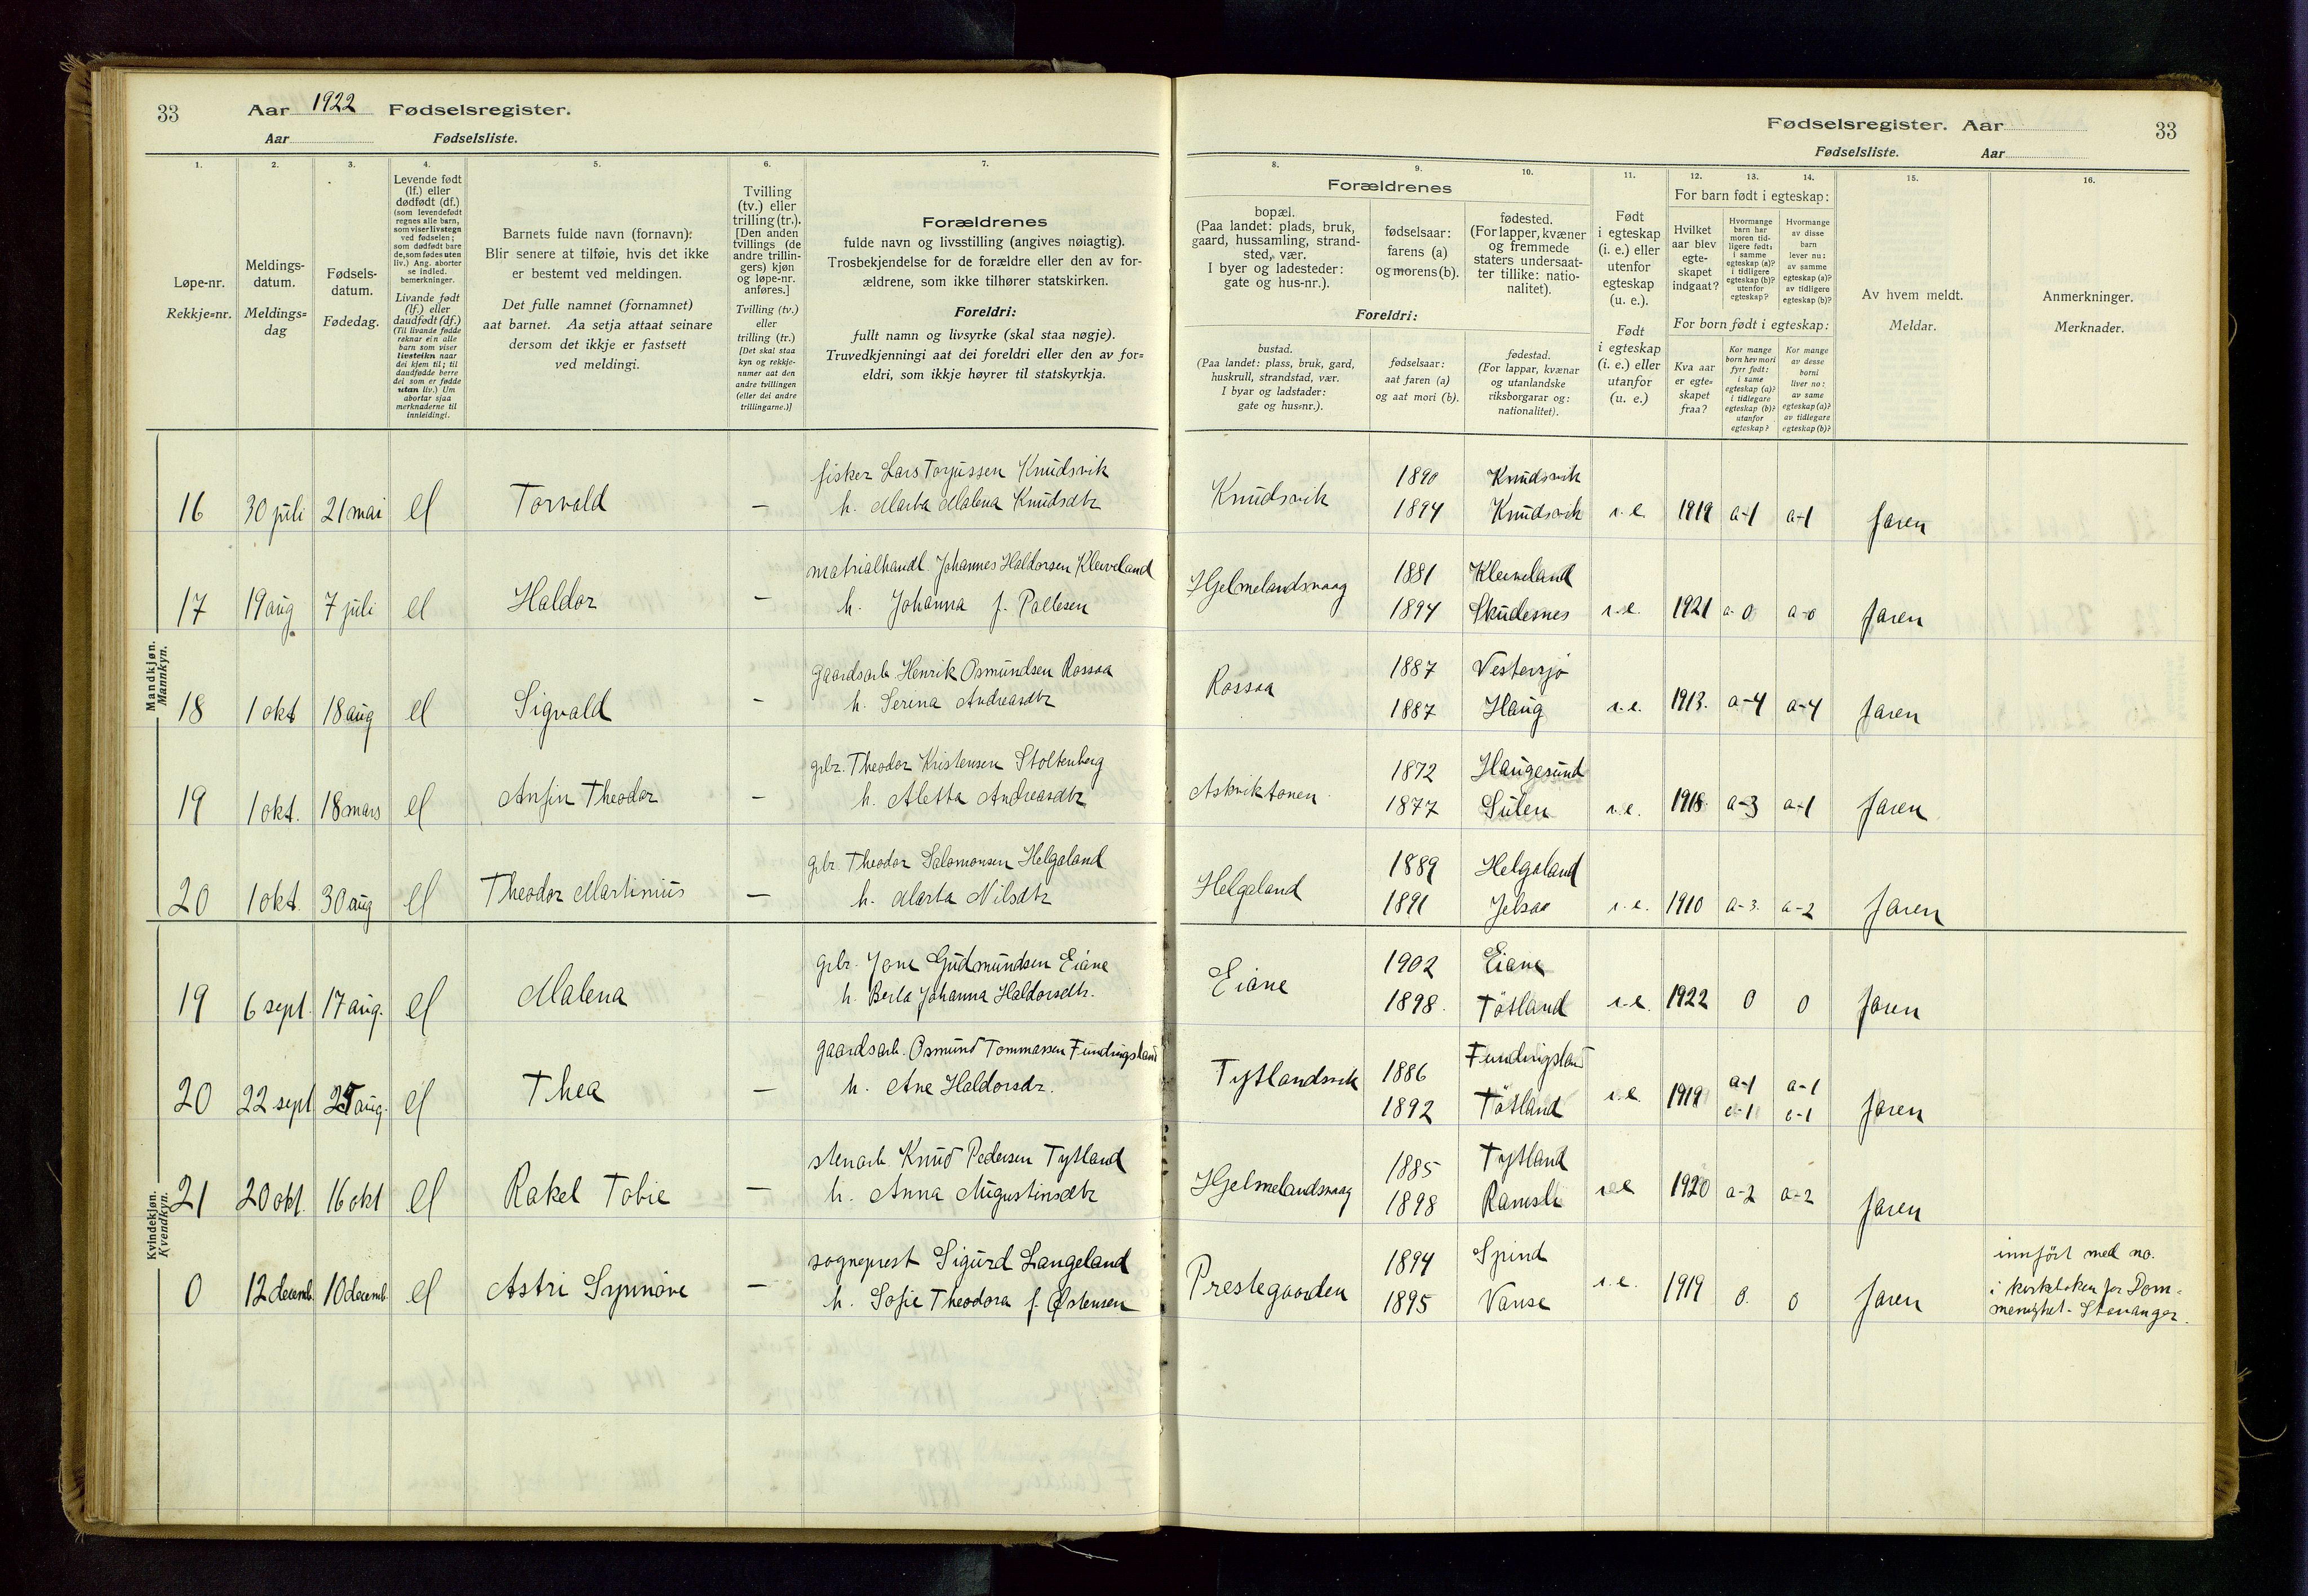 33 Aar 1922 Fødselsregister.
Aar Fødselsliste.
1. 2. 3. 4. 5. 6. 7.
Løpe-nr.
Rekkje=nr.
Meldings-
datum.
Meldings=
dag
Fødsels-
datum.
Fødedag.
Levende født
(lf.) eller
dødfødt (df.)
(som levendefødt
regnes alle barn,
som viser livstegn
ved fødselen;
som dødfødt bare
de, som fødes uten
liv.) Ang. aborter
se indled.
bemerkninger.
Livande født
(lf.) eller
daudfødt (df.)
(Til livande fødde
reknar ein alle
barn som viser
livsteikn naar
dei kjem til; til
daudfødde berre
dei som er fødde
utan liv.) Um
abortar sjaa
merknaderne til
innleidingi.
Barnets fulde navn (fornavn):
Blir senere at tilføie, hvis det ikke
er bestemt ved meldingen.
Det fulle namnet (fornamnet)
aat barnet. Aa setja attaat seinare
dersom det ikkje er fastsett
ved meldingi.
Tvilling
(tv.) eller
trilling (tr.).
[Den anden
tvillings (de
andre trillin-
gers) kjøn
og løpe-nr.
anføres.]
Tvilling (tv.)
eller
trilling (tr.)
[Det skal staa
kyn og rekkje-
numer aat den
andre tvillingen
(eller dei andre
trillingarne.)]
Forældrenes
fulde navn og livsstilling (angives nøiagtig).
Trosbekjendelse for de forældre eller den av for-
ældrene, som ikke tilhører statskirken.
Foreldri:
fullt namn og livsyrke (skal staa nøgje).
Truvedkjenningi aat dei foreldri eller den av for=
eldri, som ikkje høyrer til statskyrkja.
Mandkjøn.
Mannkyn.
fisker Lars Torjussen Knudsvik
16 30 juli 21 mai lf Torvald — h. Marta Malena Knudsdtr
matrialhandl. Johannes Haldorsen Kleiveland
17 19 aug 7 juli lf Haldor — h. Johanna f. Pallesen
gaardsarb. Henrik Osmundsen Rossaa
18 1 okt 18 aug lf Sigvald — h. Serina Andreasdtr
gbr. Theodor Kristensen Stoltenberg
19 1 okt. 18 mars lf Anfin Theodor — h. Aletta Andreasdtr
gbr. Theodor Salomonsen Helgaland
20 1 okt. 30 aug lf Theodor Martinius — h. Marta Nilsdtr
Kvindekjøn.
Kvendkyn.
gbr. Jone Gudmundsen Eiane
19 6 sept. 17 aug. lf Malena h. Berta Johanna Haldorsdtr.
gaardsarb. Osmund Tommassen Fundingsland
20 22 sept 25 aug. lf Thea — h. Ane Haldorsdr.
stenarb. Knud Pedersen Tytland
21 20 okt. 16 okt lf Rakel Tobie — h. Anna Augustinsdtr
sogneprest Sigurd Langeland
0 12 decemb. 10 decemb. lf Astri Synnöve — h. Sofie Theodora f. Østensen
Fødselsregister. Aar 33
Fødselsliste. Aar
8. 9. 10. 11. 12. 13. 14. 15. 16.
Forældrenes
bopæl.
(Paa landet: plads, bruk,
gaard, hussamling, strand-
sted, vær.
I byer og ladesteder:
gate og hus-nr.).
fødselsaar:
farens (a)
og morens (b).
fødested.
(For lapper, kvæner
og fremmede
staters undersaat-
ter tillike: natio-
nalitet).
Foreldri:
bustad.
(Paa landet: plass, bruk, gard,
huskrull, strandstad, vær.
I byar og ladstader:
gate og hus=nr.).
fødselsaar:
aat faren (a)
og aat mori (b).
fødestad.
(For lappar, kvænar
og utanlandske
riksborgarar og:
nationalitet).
Født
i egteskap
(i. e.) eller
utenfor
egteskap
(u. e.).
Født
i egteskap
(i. e.) eller
utanfor
(u. e.)
For barn født i egteskap:
Hvilket
aar blev
egte-
skapet
indgaat?
Hvormange
barn har
moren tid-
ligere født:
i samme
egteskap (a)?
i tidligere
egteskap (b)?
utenfor
egteskap?
Hvormange
av disse
barn
lever nu:
av samme
egteskap (a)?
av tidligere
egteskap (b)?
For born født i egteskap:
Kva aar
er egte=
skapet
fraa?
Kor mange
born hev mori
fyrr født:
i same
egteskap (a)?
i tidlegare
egteskap (b)?
utanfor
egteskap?
Kor mange
av desse
borni
liver no:
av same
egteskap (a)?
av tidlegare
egteskap (b)?
Av hvem meldt.
Meldar.
Anmerkninger.
Merknader.
1890 Knudsvik
Knudsvik 1894 Knudsvik i. e. 1919 a-1 a-1 faren
1881 Kleiveland
Hjelmelandsvaag 1894 Skudesnes i. e. 1921 a-0 a-0 faren
1887 Vestersjø
Rossaa 1887 Haug i. e. 1913. a-4 a-4 faren
1872 Haugesund
Askviktonen 1877 Sulen i. e. 1918. a-3 a-1 faren
1889 Helgaland
Helgaland 1891 Jelsaa i. e. 1910 a-3. a-2 faren
1902 Eiane
Eiane 1898. Tötland i. e. 1922 0 0 faren
1886 Fundingsland a-1 a-1
Tytlandsvik 1892 Tötland i. e. 1919 c-1 c-1 faren
1885 Tytland
Hjelmelandsvaag 1898 Ramsli i e 1920 a-2 a-2 faren
1894 Spind innfört med no.
Prestegaarden 1895 Vanse i. e. 1919 0. 0 faren i kirkeboken for Dom-
menighet - Stavanger.